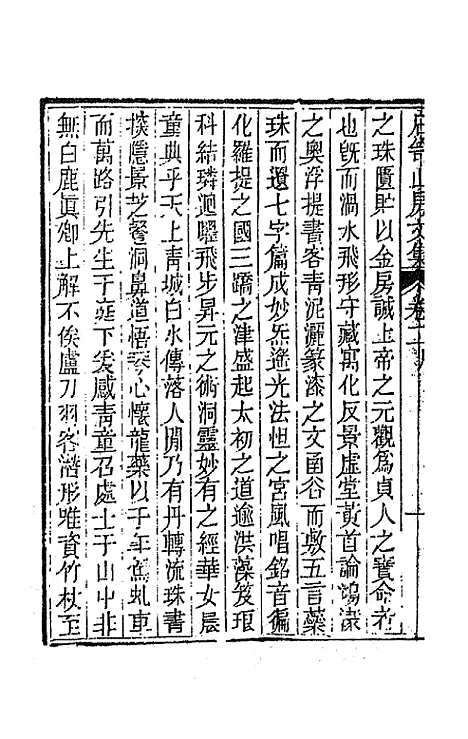 石笥山房文集 卷二
之珠匱貯以金房誠上帝之元觀為貞人之寶命者
也旣而渦水飛形守藏寓化反景虛堂黃首論
之奧浮提書客青泥灑篆漆之文函谷而敷五言蘂
珠而還七字篇成妙炁遂光法怛之宮風唱銘音徧
化羅提之國三蹻之津盛起太初之道逾洪藻笈琅
科結璘迴曜飛步昇元之術洞靈妙有之經華女晨
童典乎天上青城白水傳落人閒乃有丹轉流珠書
探隱景芝馨洞鼻道悟琴心懷龍藥以千年駕虬車
而萬路引先生于庭下爰感青童召處士于山中非
無白鹿眞卿上解不俟盧刀羽客潛形唯資竹杖至